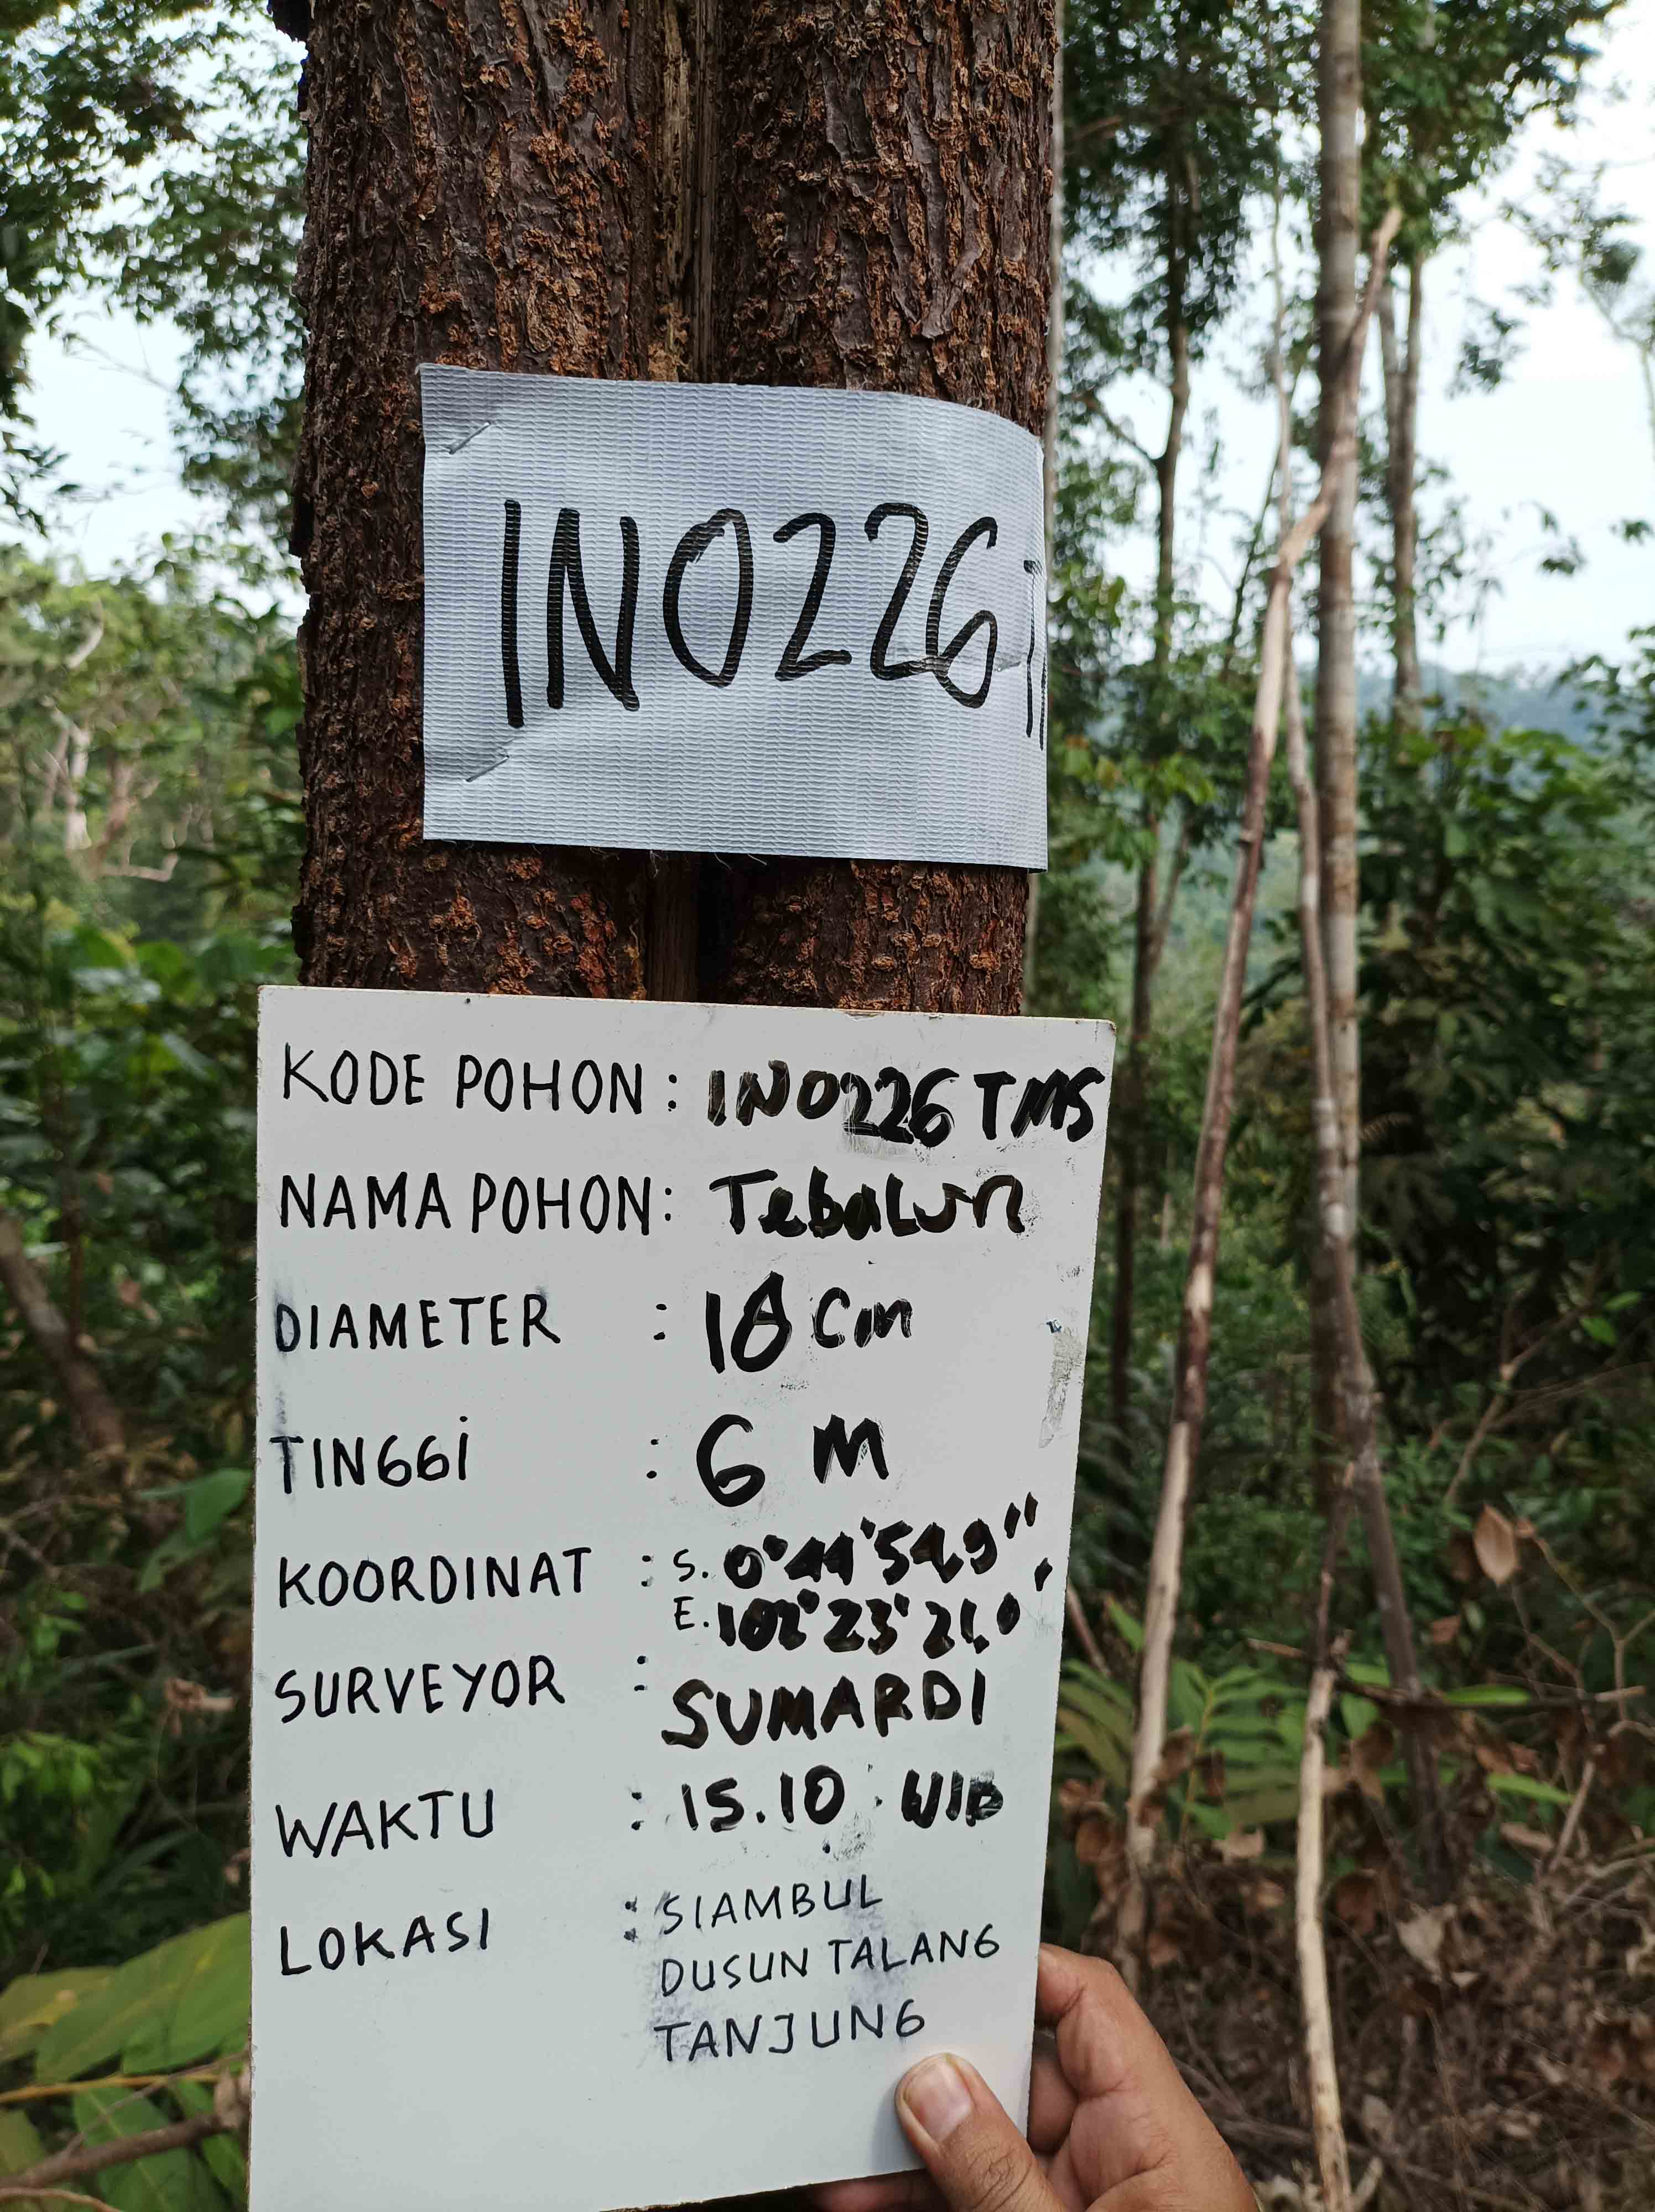 INO226 T
KODE POHON : INO226 TMS
NAMA POHON : Tebalun
DIAMETER : 18 Cm
TINGGI : 6 M
KOORDINAT : S. 0°44'54,9"
E. 102°23'21,0"
SURVEYOR : SUMARDI
WAKTU : 15.10 WIB
LOKASI : SIAMBUL
DUSUN TALANG
TANJUNG